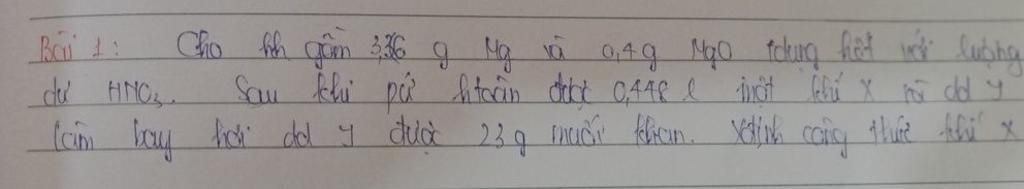 Bài 1: Cho hh gồm 3,36 g Mg và 0,4g MgO tdụng hết với lượng
dư HNO3. Sau khi pứ htoàn được 0,448 l một khí X và dd Y
làm bay hơi dd Y được 23g muối khan. Xđịnh công thức khí X